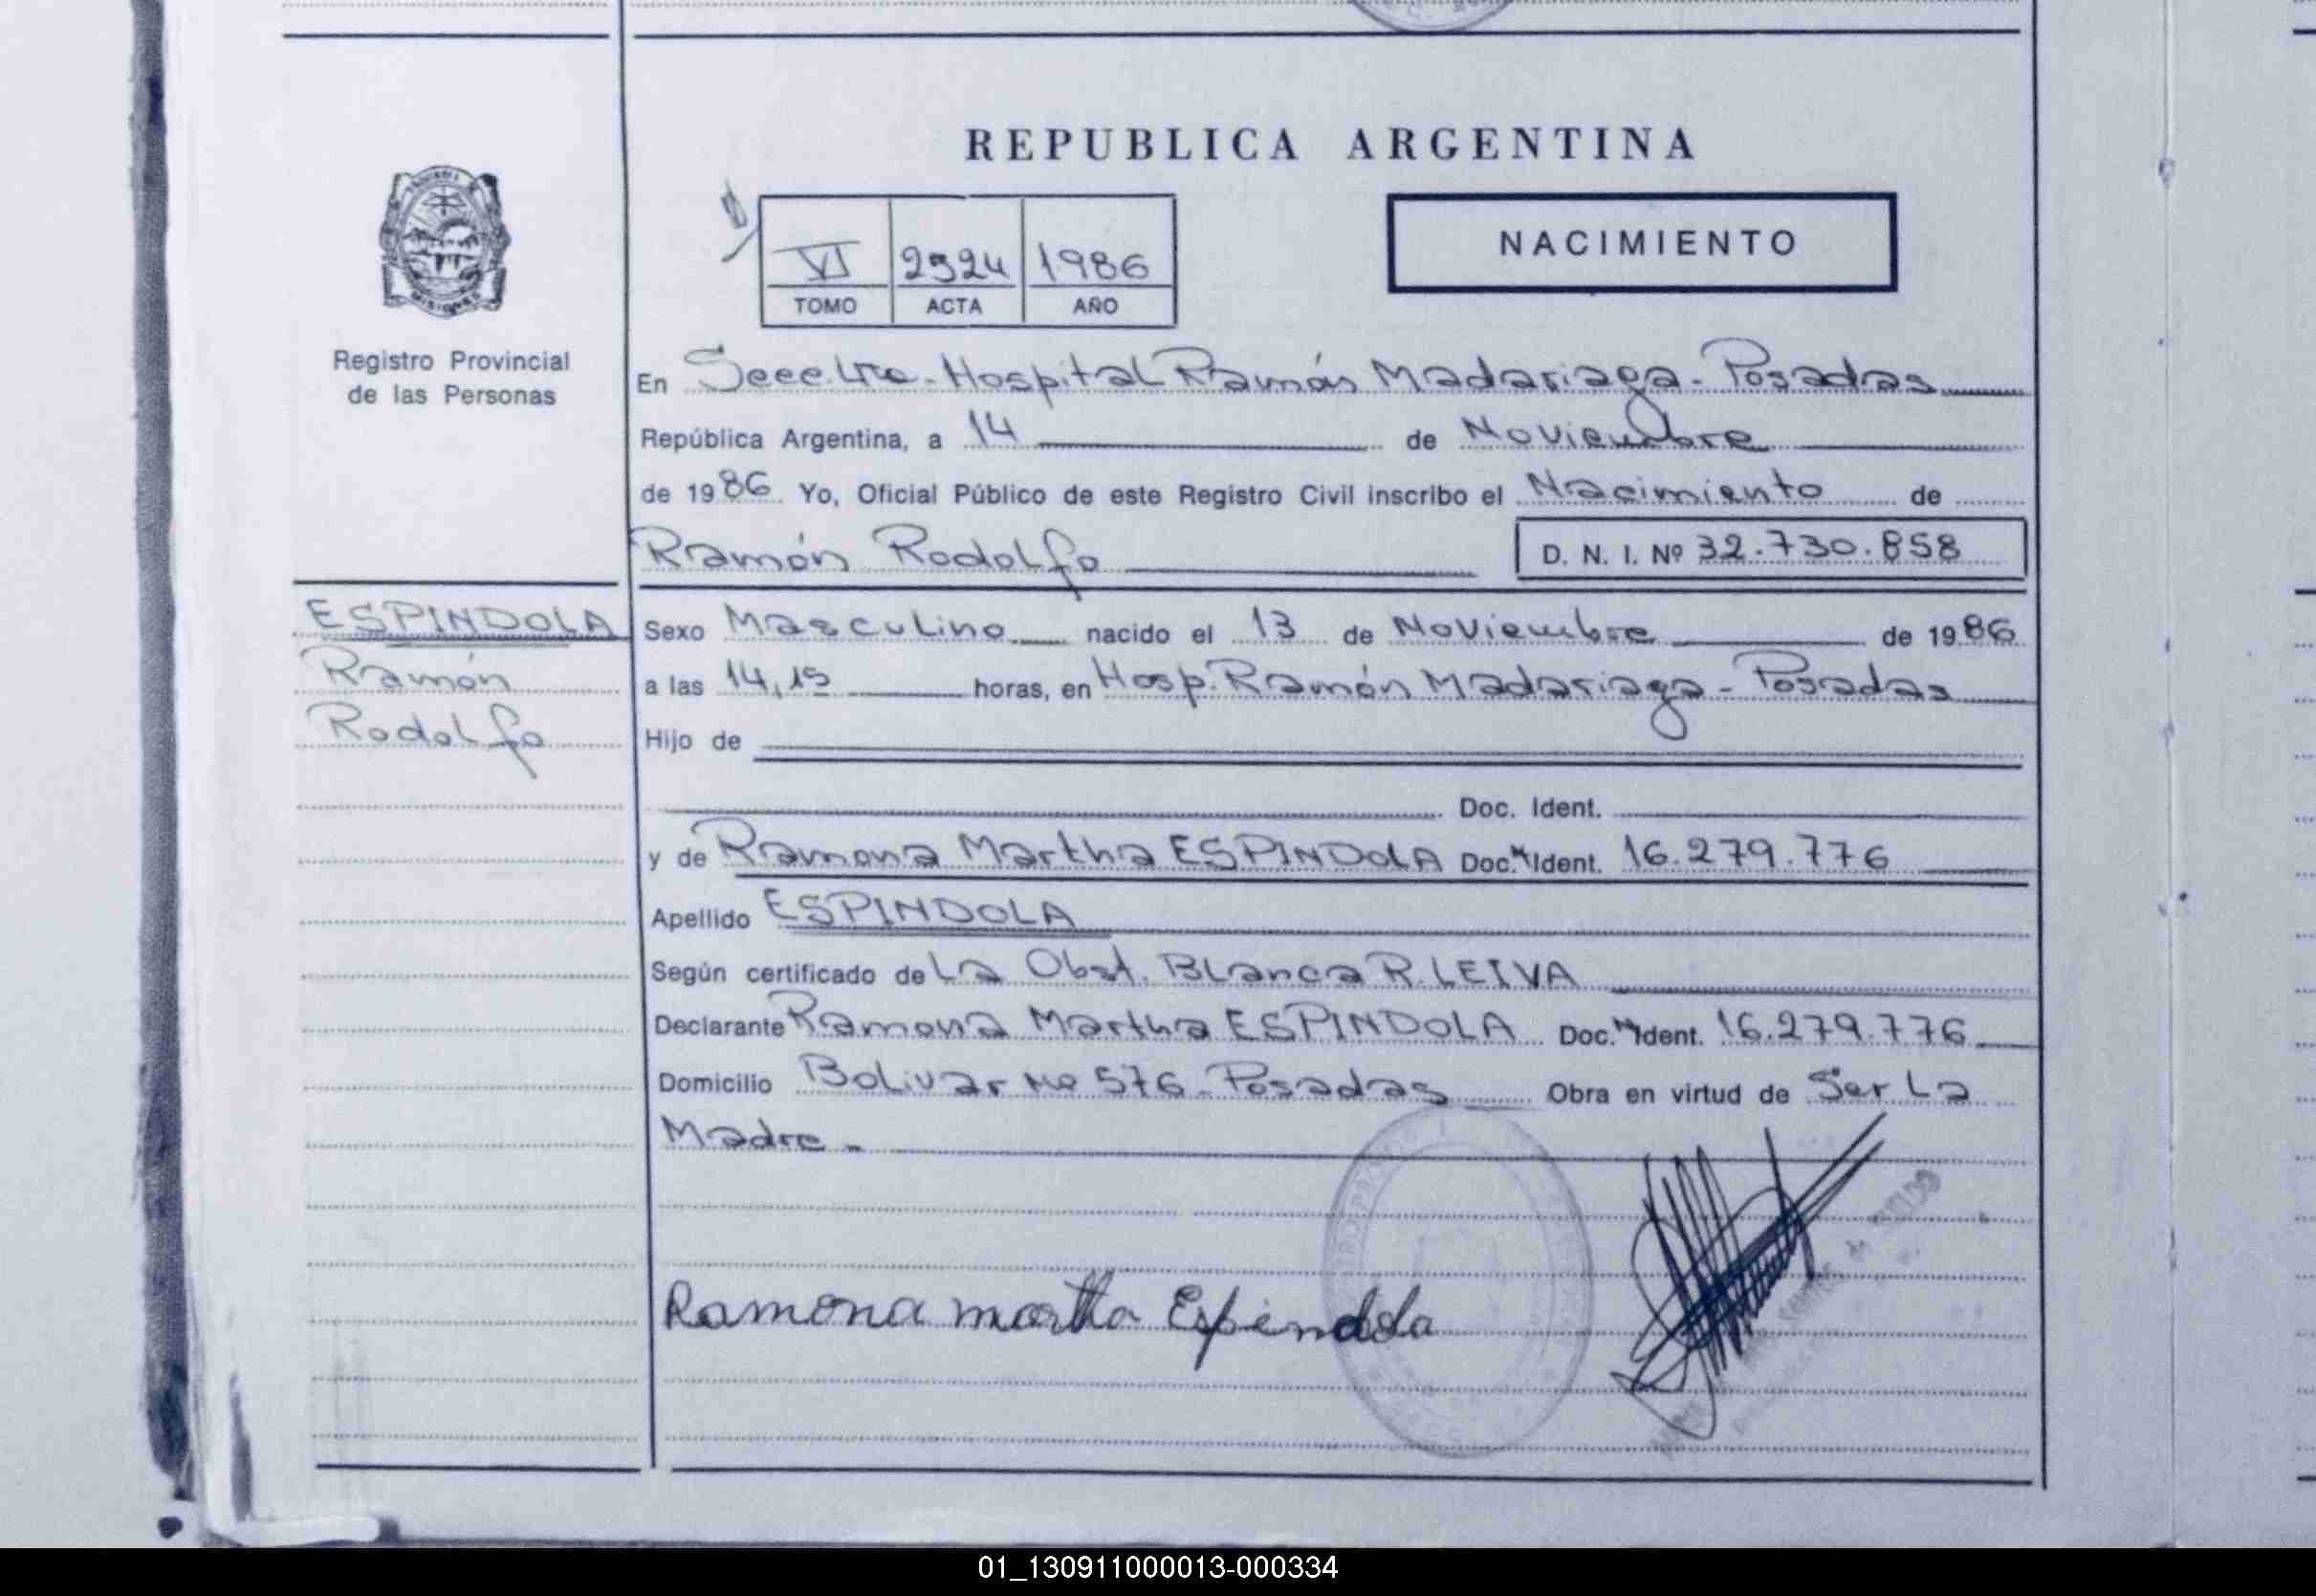 REPUBLICA ARGENTINA
NACIMIENTO
VI 2924 1986
TOMO ACTA AÑO
MISIONES
Registro Provincial
de las Personas
En Secc. Hospital Ramón Madariaga - Posadas
República Argentina, a 14 de Noviembre
de 1986 Yo, Oficial Público de este Registro Civil inscribo el Nacimiento de
Ramón Rodolfo D. N. I. Nº 32.730.858
ESPINDOLA
Ramón
Rodolfo
Sexo Masculino nacido el 13 de Noviembre de 1986
a las 14,15 horas, en Hosp. Ramón Madariaga - Posadas
Hijo de
Doc. Ident.
y de Ramona Martha ESPINDOLA Doc. Ident. 16.279.776
Apellido ESPINDOLA
Según certificado de La Obst. Blanca R. LEIVA
Declarante Ramona Martha ESPINDOLA Doc. Ident. 16.279.776
Domicilio Bolivar Nº 576 - Posadas Obra en virtud de Ser La
Madre -
Ramona martha Espindola
01_130911000013-000334